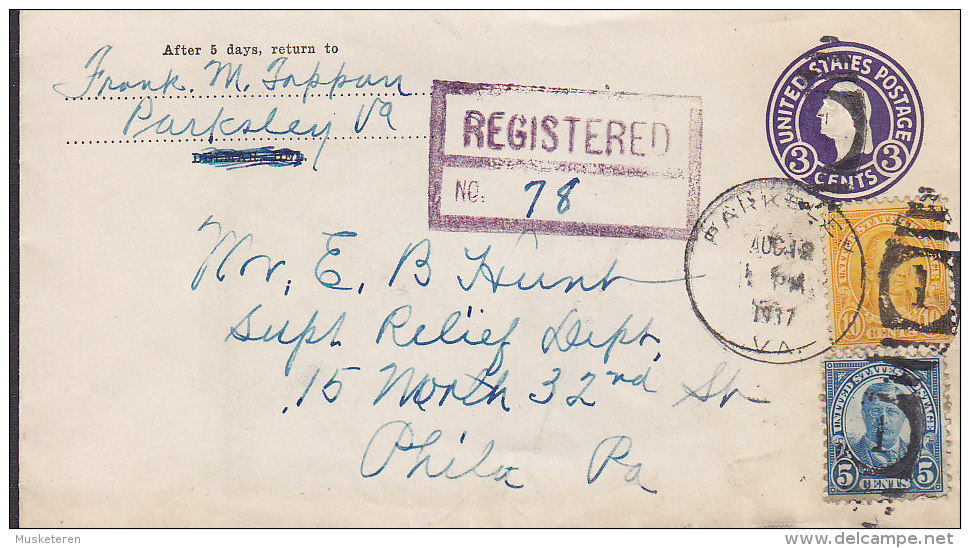 After 5 days, return to
Frank M. Tappan
Parksley Va
REGISTERED
NO. 78
UNITED STATES POSTAGE
3 CENTS 3
Mr. E. B Hunt
Supt Relief Dept.
15 North 32nd St
Phila Pa
PARKSLEY
AUG 12
PM
1937
VA.
UNITED STATES POSTAGE
10
1
UNITED STATES POSTAGE
1
5 CENTS 5
Musketeren
delcampe.net